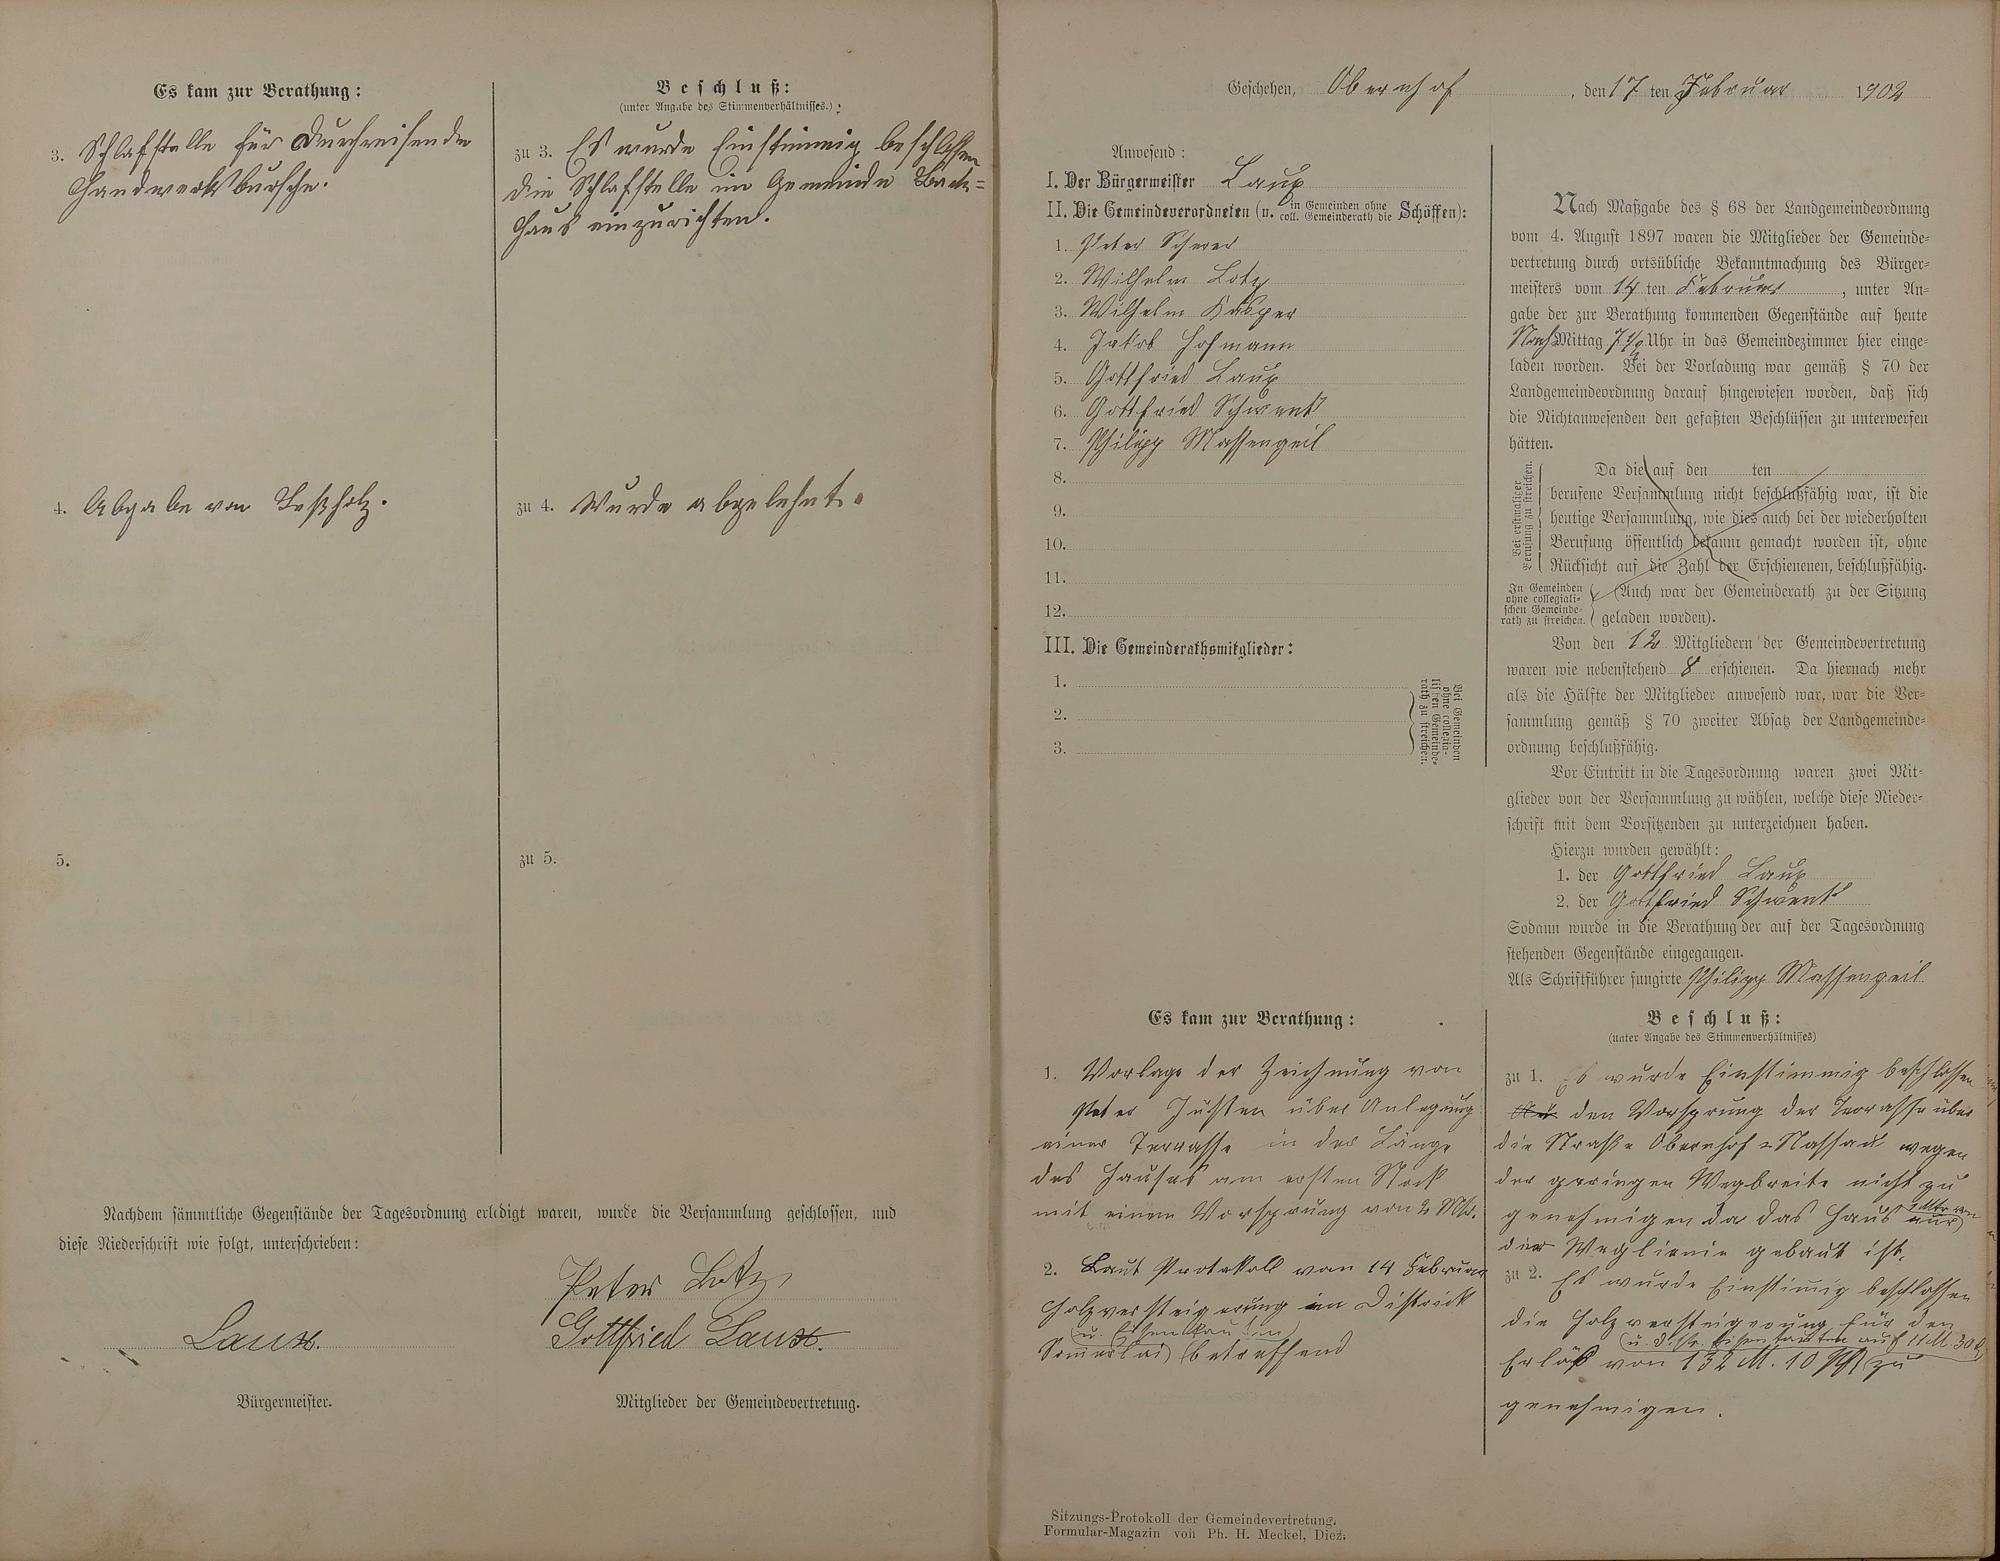 Es kam zur Berathung:
3. Schlafstelle für Durchreisende
Handwerksbursche.
4. Abgabe von Leßholz.
5.
Beschluß:
(unter Angabe des Stimmenverhältnisses.):
zu 3. Es wurde Einstimmig beschlossen
die Schlafstelle im Gemeinde Back-
haus einzurichten.
zu 4. Wurde abgelehnt.
zu 5.
Nachdem sämmtliche Gegenstände der Tagesordnung erledigt waren, wurde die Versammlung geschlossen, und
diese Niederschrift wie folgt, unterschrieben:
Peter Lotz
Laux.
Gottfried Laux.
Bürgermeister.
Mitglieder der Gemeindevertretung.
Geschehen, Obernhof, den 17 ten Februar 1902
Anwesend:
I. Der Bürgermeister Laux
II. Die Gemeindeverordneten (u. in Gemeinden ohne coll. Gemeinderath die Schöffen):
1. Peter Scherer
2. Wilhelm Lotz
3. Wilhelm Kasper
4. Jakob Hofmann
5. Gottfried Laux
6. Gottfried Schwenk
7. Philipp Massengeil
8.
9.
10.
11.
12.
III. Die Gemeinderathsmitglieder:
1.
2.
3.
Bei Gemeinden
ohne collegia-
lischen Gemeinde-
rath zu streichen.
Nach Maßgabe des § 68 der Landgemeindeordnung
vom 4. August 1897 waren die Mitglieder der Gemeinde-
vertretung durch ortsübliche Bekanntmachung des Bürger-
meisters vom 14 ten Februar, unter An-
gabe der zur Berathung kommenden Gegenstände auf heute
Nach Mittag 7 1/2 Uhr in das Gemeindezimmer hier einge-
laden worden. Bei der Vorladung war gemäß § 70 der
Landgemeindeordnung darauf hingewiesen worden, daß sich
die Nichtanwesenden den gefaßten Beschlüssen zu unterwerfen
hätten.
Bei erstmaliger
Berufung zu streichen.
Da die auf den ten
berufene Versammlung nicht beschlußfähig war, ist die
heutige Versammlung, wie dies auch bei der wiederholten
Berufung öffentlich bekannt gemacht worden ist, ohne
Rücksicht auf die Zahl der Erschienenen, beschlußfähig.
In Gemeinden
ohne collegiali-
schen Gemeinde-
rath zu streichen.
(Auch war der Gemeinderath zu der Sitzung
geladen worden).
Von den 12 Mitgliedern der Gemeindevertretung
waren wie nebenstehend 8 erschienen. Da hiernach mehr
als die Hälfte der Mitglieder anwesend war, war die Ver-
sammlung gemäß § 70 zweiter Absatz der Landgemeinde-
ordnung beschlußfähig.
Vor Eintritt in die Tagesordnung waren zwei Mit-
glieder von der Versammlung zu wählen, welche diese Nieder-
schrift mit dem Vorsitzenden zu unterzeichnen haben.
Hierzu wurden gewählt:
1. der Gottfried Laux
2. der Gottfried Schwenk
Sodann wurde in die Berathung der auf der Tagesordnung
stehenden Gegenstände eingegangen.
Als Schriftführer fungirte Philipp Massengeil
Es kam zur Berathung:
1. Vorlage der Zeichnung von
Peter Jüsten über Anlegung
einer Terrasse in der Länge
des Hauses am ersten Stock
mit einem Vorsprung von 2 Mtr.
2. Laut Protokoll vom 14 Februar
Holzversteigerung im Districkt
(u. Eisenkauten)
Sommerlai betreffend
Beschluß:
(unter Angabe des Stimmenverhältnisses)
zu 1. Es wurde Einstimmig beschlossen
den Vorsprung der Terrasse über
die Straße Obernhof-Nassau wegen
der geringen Wegbreite nicht zu
genehmigen da das Haus nur 1 Mtr von
der Weglienie gebaut ist.
zu 2. Es wurde Einstimig beschlossen
die Holzversteigerung für den
Erlös von 132 M. 10 Pf zu
genehmigen.
Sitzungs-Protokoll der Gemeindevertretung.
Formular-Magazin von Ph. H. Meckel, Diez.